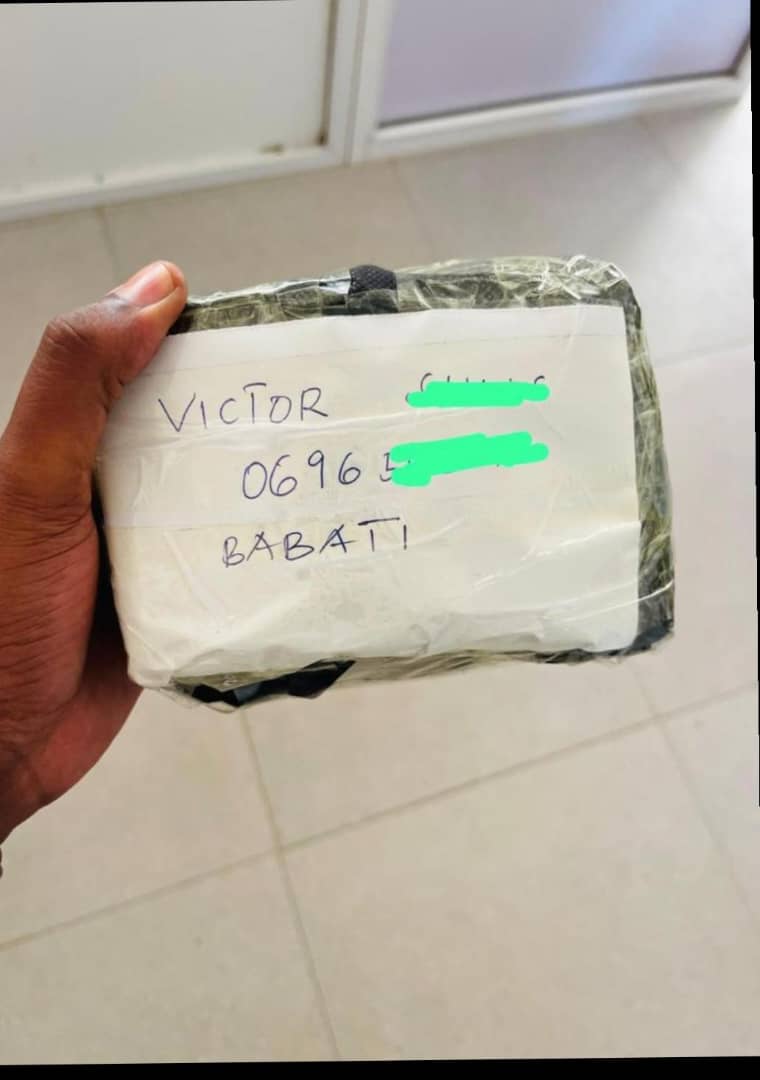 VICTOR
0696
BABATI